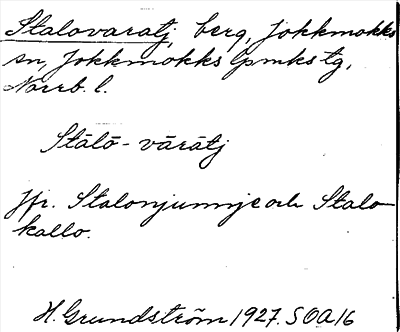 Stalovaratj, berg, Jokkmokks
sn, Jokkmokks lpmkstg,
Norrb. l.
Stālō - vārātj
Jfr. Stalonjunnje och Stalo-
kallo.
H. Grundström 1927. SOA16